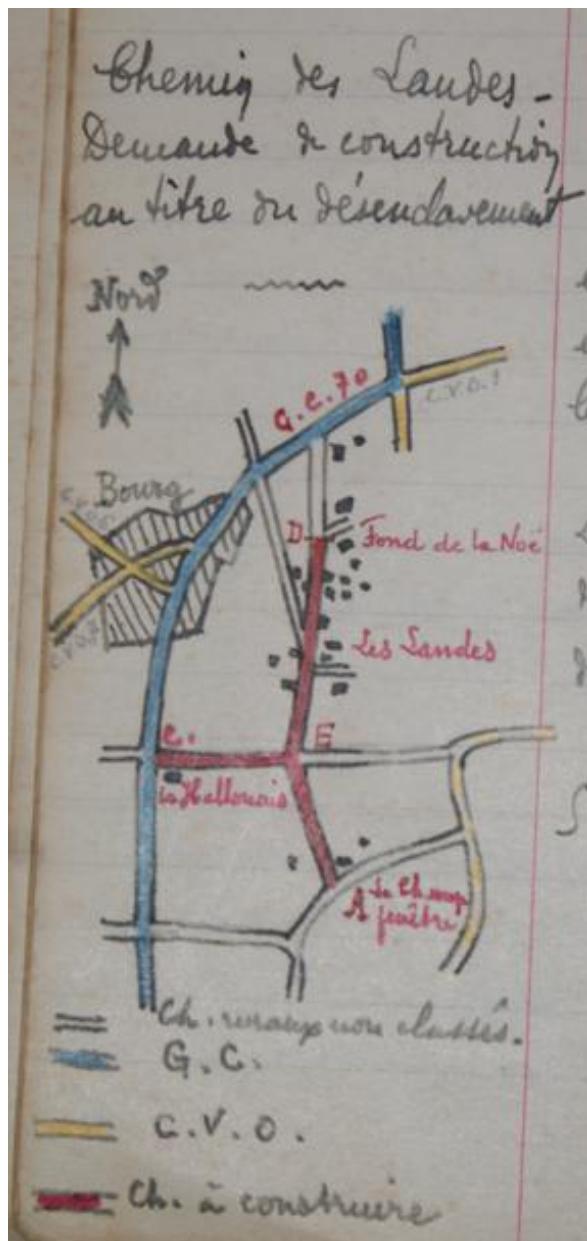 Chemin des Landes -
Demande de construction
au titre du désenclavement
Nord
G.C. 70
C.V.O. 1
Bourg
C.V.O.
D
Fond de la Noë
Les Landes
C.V.O. 7
C.
E
les Hallouais
A
Le Champ
fenêtre
Ch. ruraux non classés.
G.C.
C.V.O.
Ch. à construire